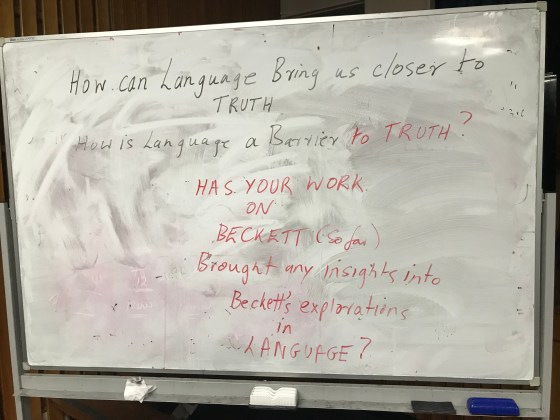 How can Language Bring us closer to
TRUTH
How is Language a Barrier to TRUTH?
HAS YOUR WORK
ON
BECKETT (So far)
Brought any insights into
Beckett's explorations
in
LANGUAGE?